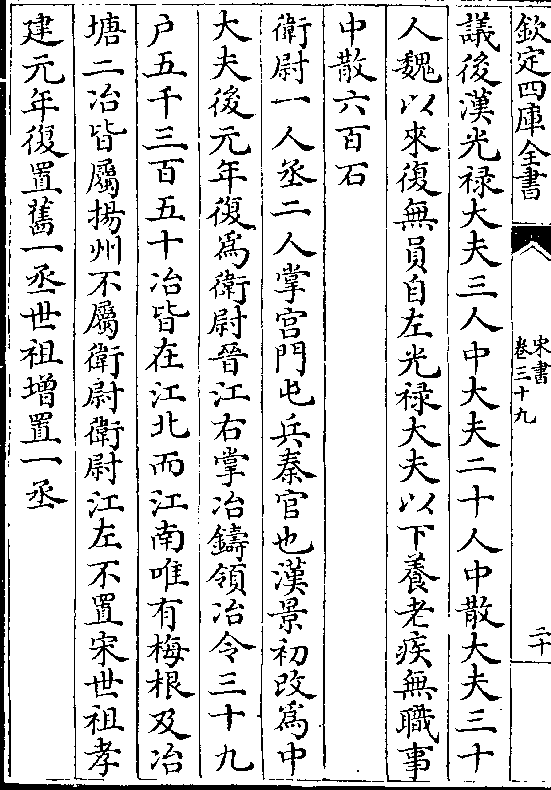 欽定四庫全書
宋書
卷三十九
二十
議後漢光禄大夫三人中大夫二十人中散大夫三十
人魏以來復無員自左光禄大夫以下養老疾無職事
中散六百石
衛尉一人丞二人掌宫門屯兵秦官也漢景初改爲中
大夫後元年復爲衛尉晉江右掌冶鑄領冶令三十九
户五千三百五十冶皆在江北而江南唯有梅根及冶
塘二冶皆屬揚州不屬衛尉衛尉江左不置宋世祖孝
建元年復置舊一丞世祖增置一丞